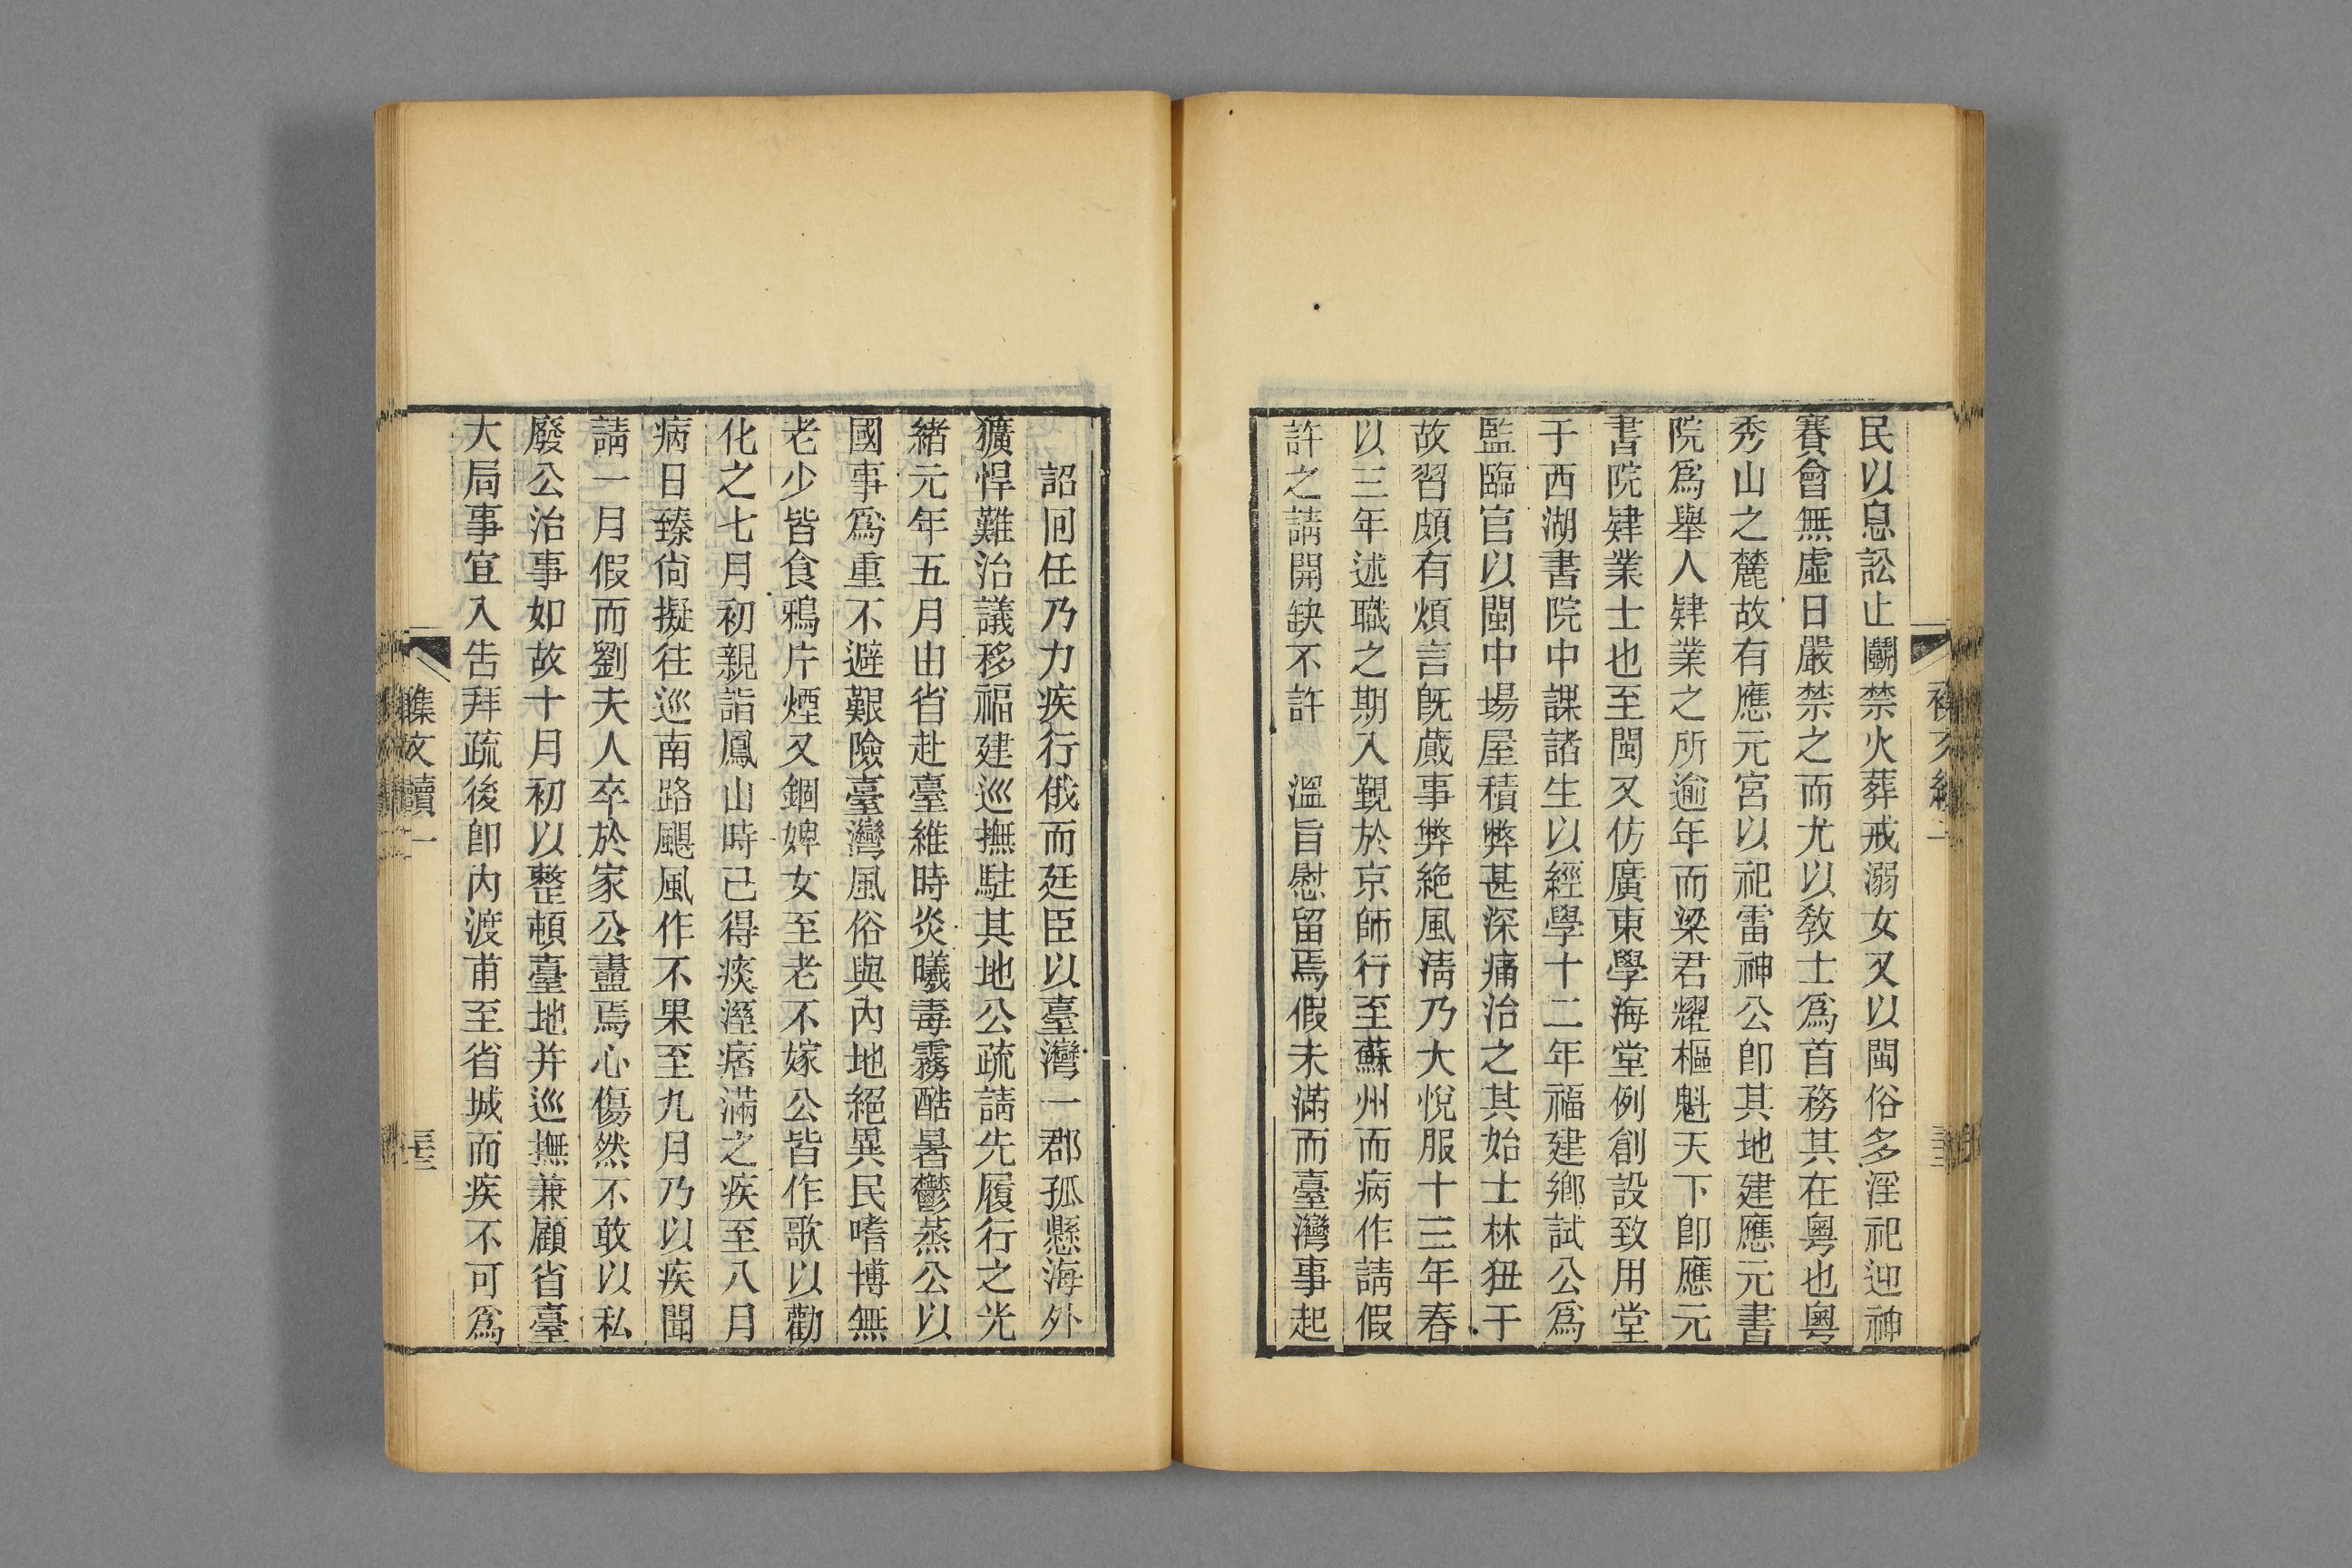 民以息訟止鬭禁火葬戒溺女又以閩俗多淫祀迎神
賽會無虛日嚴禁之而尤以敎士爲首務其在粵也粵
秀山之麓故有應元宮以祀雷神公卽其地建應元書
院爲舉人肄業之所逾年而梁君耀樞魁天下卽應元
書院肄業士也至閩又仿廣東學海堂例創設致用堂
于西湖書院中課諸生以經學十二年福建鄉試公爲
監臨官以閩中場屋積弊甚深痛治之其始士林狃于
故習頗有煩言旣蕆事弊絕風淸乃大悅服十三年春
以三年述職之期入覲於京師行至蘇州而病作請假
許之請開缺不許　溫旨慰留焉假未滿而臺灣事起
詔囘任乃力疾行俄而廷臣以臺灣一郡孤懸海外
獷悍難治議移福建巡撫駐其地公疏請先履行之光
緒元年五月由省赴臺維時炎曦毒霧酷暑鬱蒸公以
國事爲重不避艱險臺灣風俗與內地絕異民嗜博無
老少皆食鴉片煙又錮婢女至老不嫁公皆作歌以勸
化之七月初親詣鳳山時已得痰溼痞滿之疾至八月
病日臻尙擬往巡南路颶風作不果至九月乃以疾聞
請一月假而劉夫人卒於家公盡焉心傷然不敢以私
廢公治事如故十月初以整頓臺地并巡撫兼顧省臺
大局事宜入告拜疏後卽內渡甫至省城而疾不可爲
襍文續一